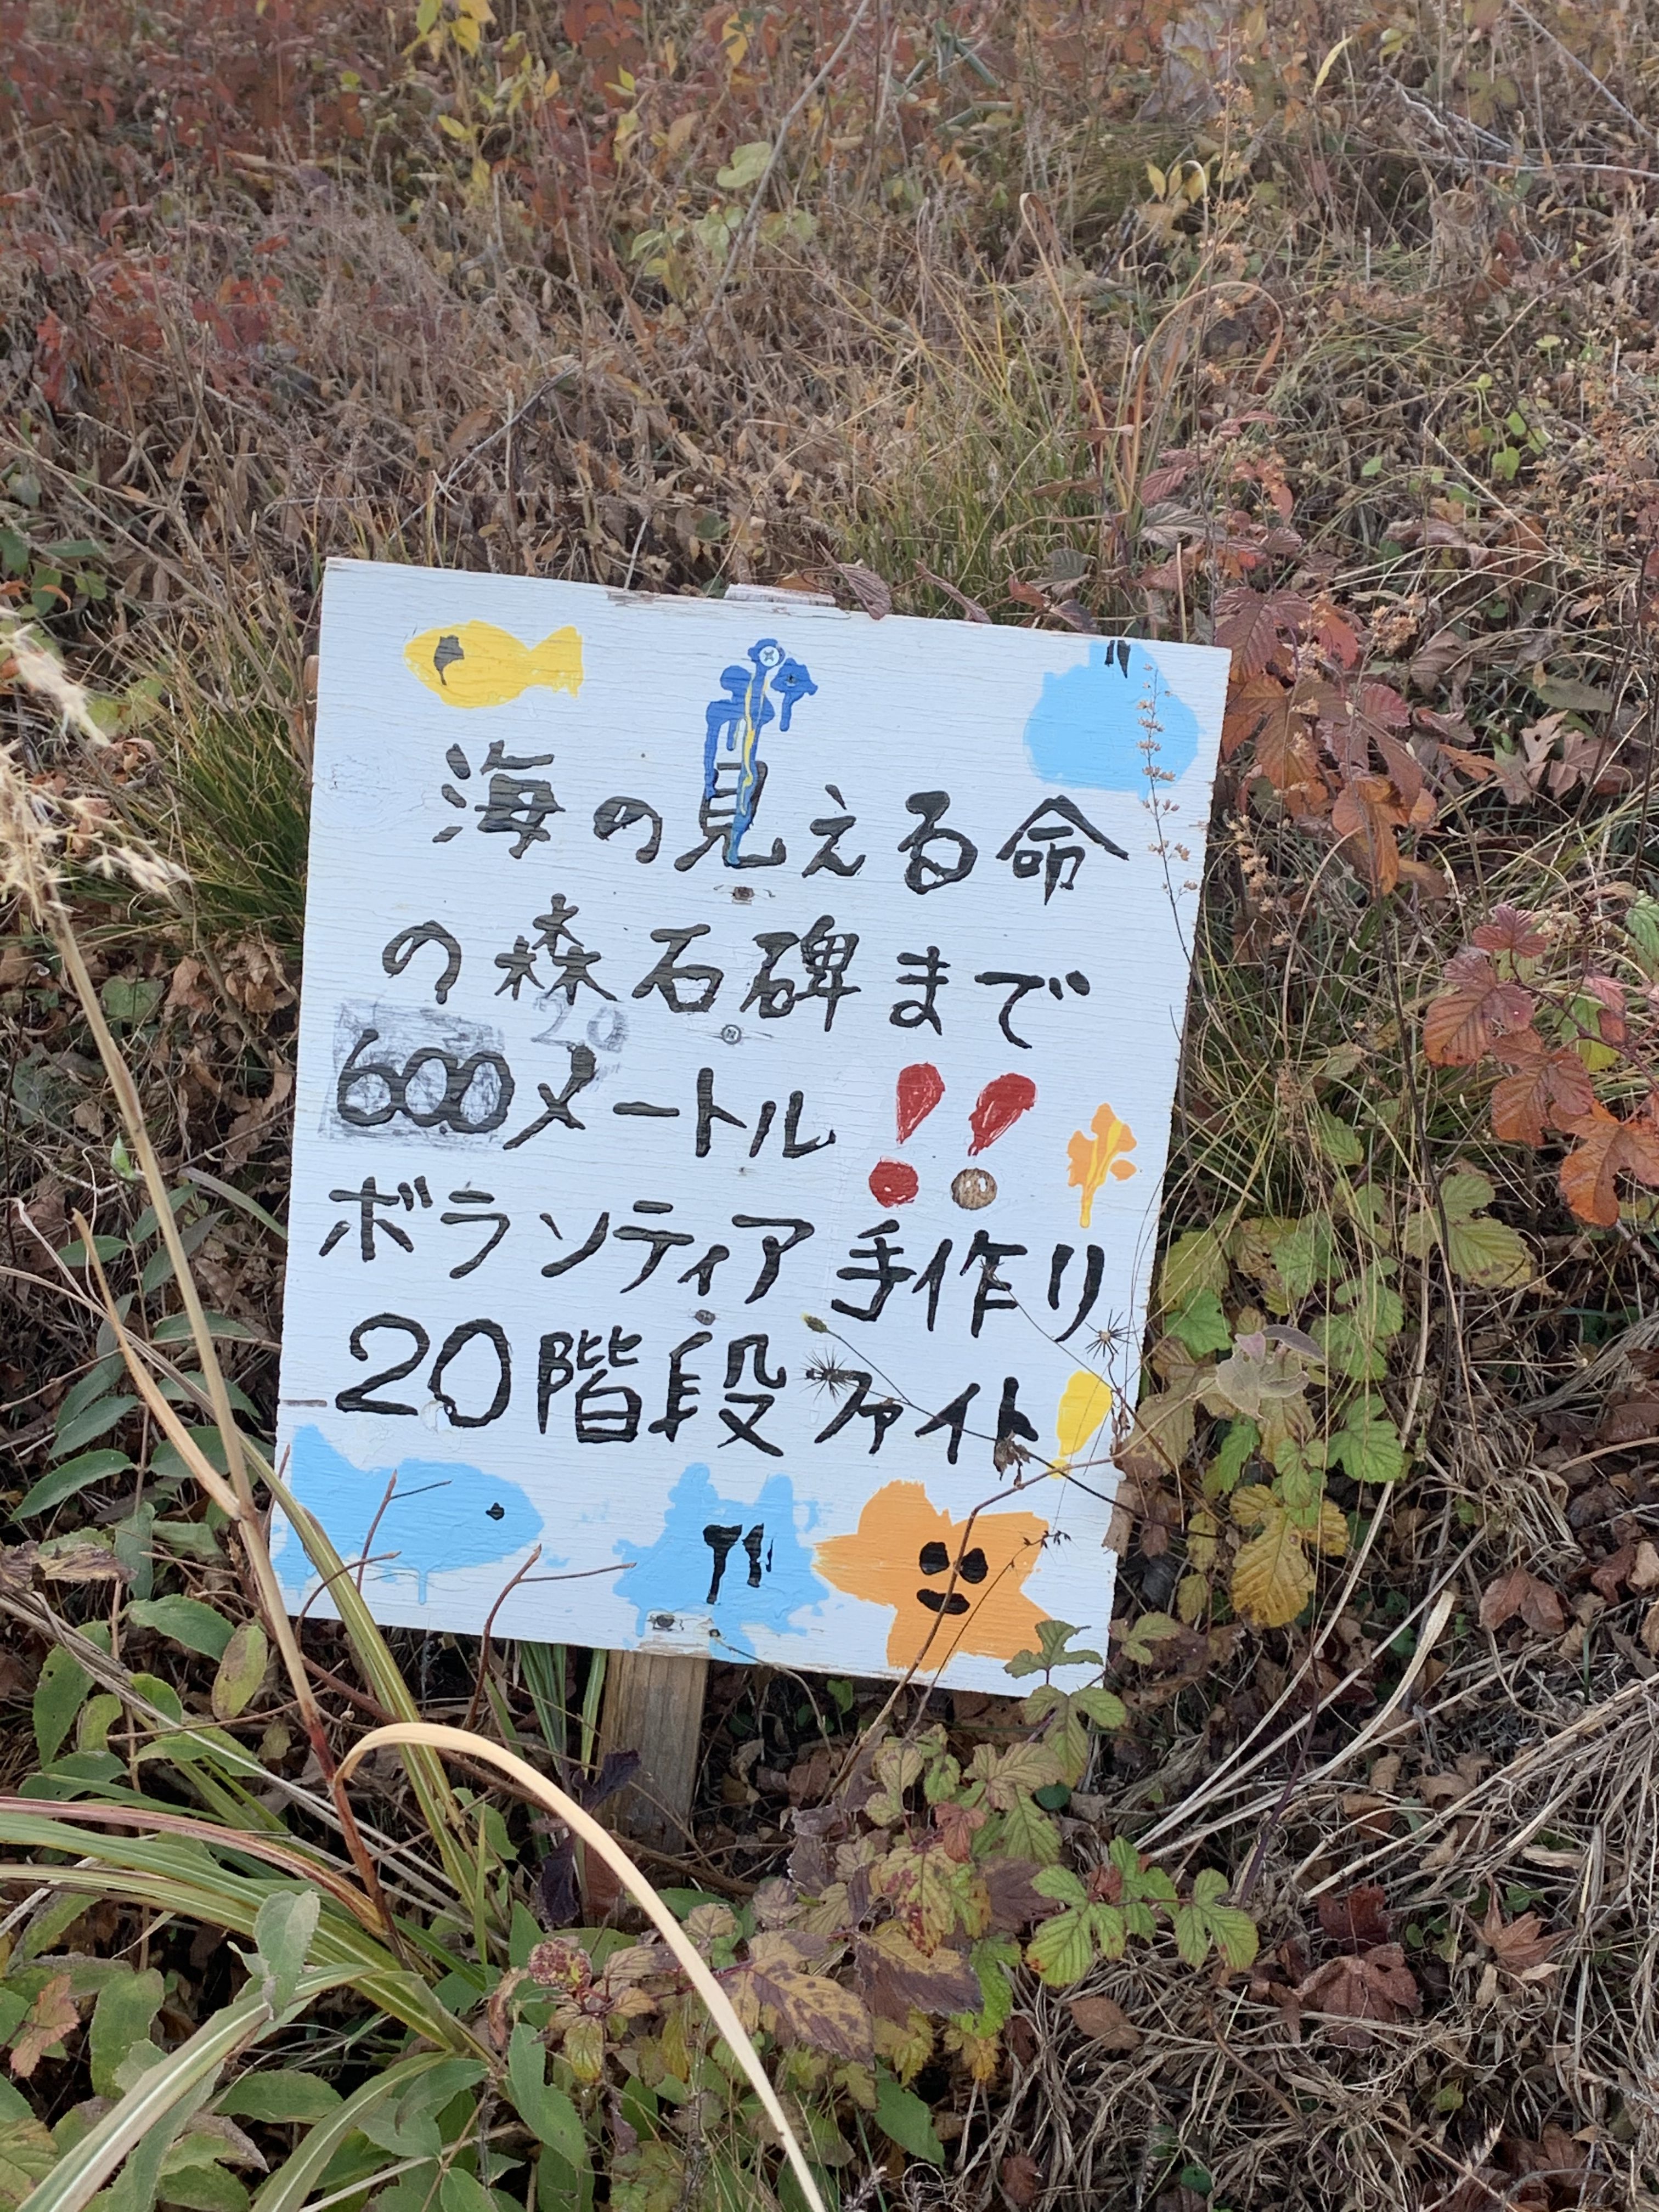 海の見える命
の森石碑まで
20
600メートル!!
ボランティア手作り
20階段ファイト